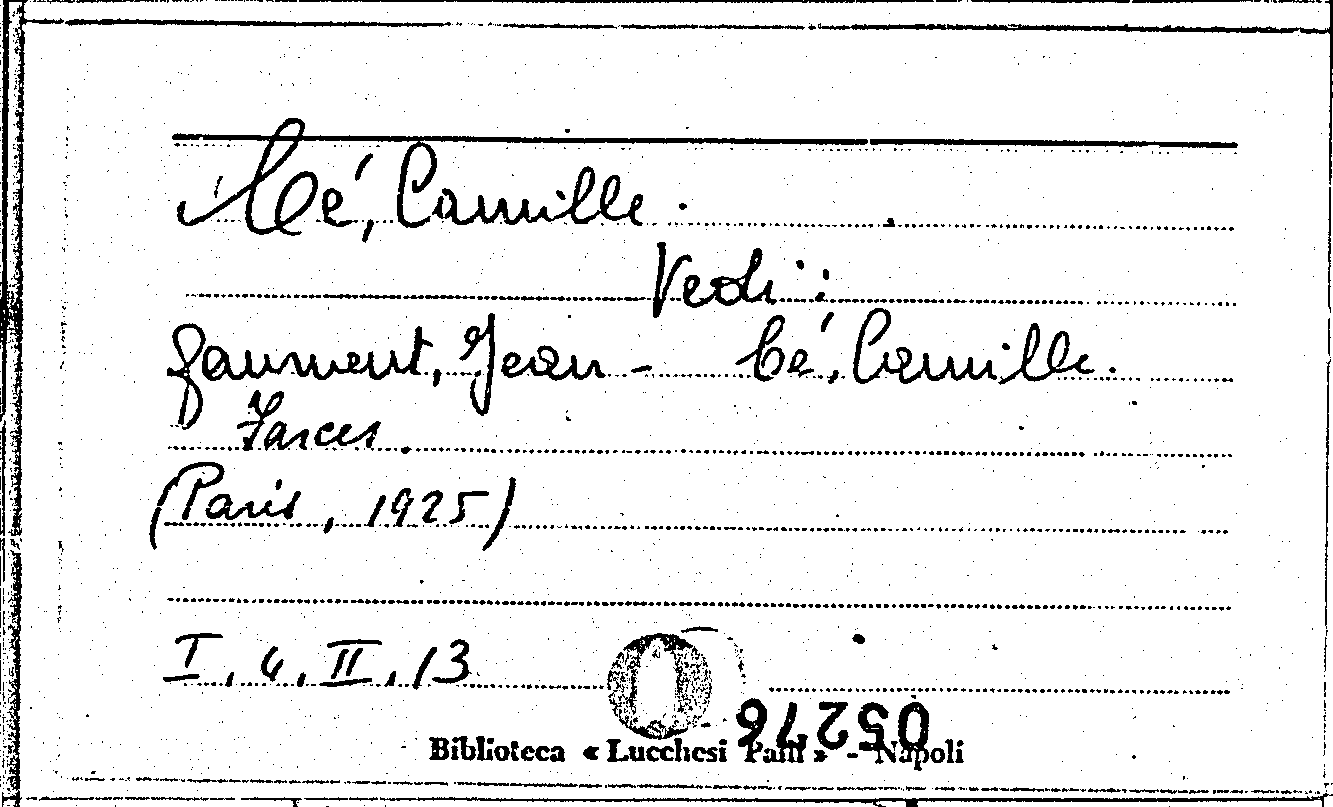 Cé, Camille.
Vedi:
Gaument, Jean - Cé, Camille.
Farces.
(Paris, 1925)
I, 4, II, 13
05276
Biblioteca « Lucchesi Palli » - Napoli